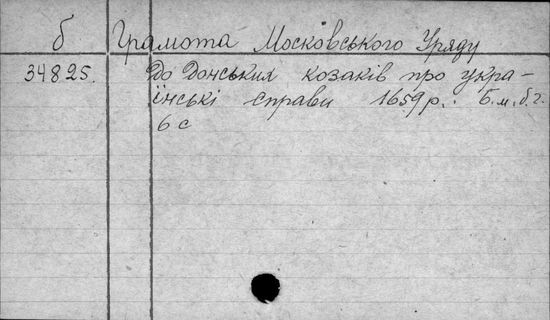 б Грамота Московського Уряду
34825. До Донських козаків про укра-
їнські справи 1659 р. Б. м. б. г.
6 с